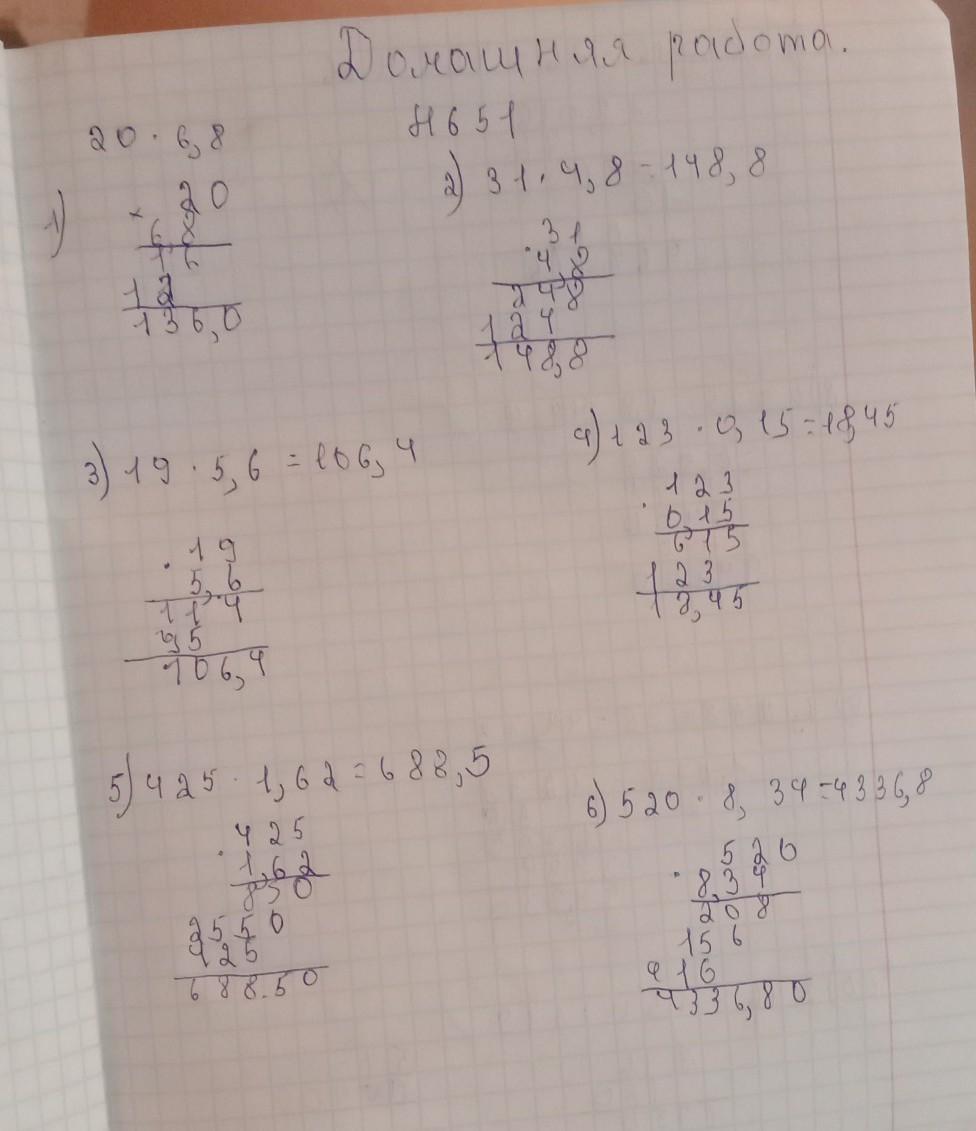 Домашняя работа.
№651
20 · 6,8
1)
× 20
6 8
1 6
1 2
136,0
2) 31 · 4,8 = 148,8
· 31
4,8
248
124
148,8
3) 19 · 5,6 = 106,4
· 19
5,6
114
95
106,4
4) 123 · 0,15 = 18,45
· 123
0,15
615
123
18,45
5) 425 · 1,62 = 688,5
· 425
1,62
850
2550
425
688.50
6) 520 · 8,34 = 4336,8
· 520
8,34
208
156
416
4336,80